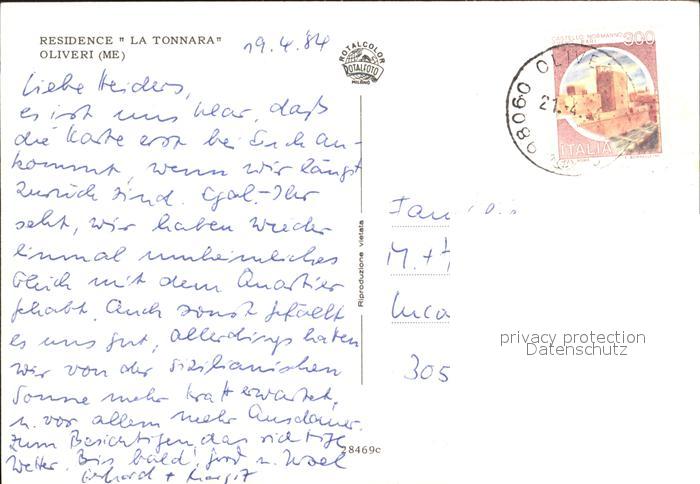 RESIDENCE " LA TONNARA"
OLIVERI (ME)
19.4.84
Liebe Heiders,
es ist uns klar, daß
die Karte erst bei Euch an-
kommt, wenn wir längst
zurück sind. Egal - Ihr
seht, wir haben wieder
einmal unheimliches
Glück mit dem Quartier
gehabt. Auch sonst gefällt
es uns gut, allerdings hatten
wir von der sizilianischen
Sonne mehr Kraft erwartet,
u. vor allem mehr Ausdauer.
Zum Besichtigen das richtige
Wetter. Bis bald! u.
Gerhard + Margit
ROTALCOLOR
ROTALFOTO
MILANO
Riproduzione vietata
28469c
CASTELLO NORMANNO
BARI
300
ITALIA
98060 OLIVE
21.4.
Fam
M. + H
Luca
305
privacy protection
Datenschutz